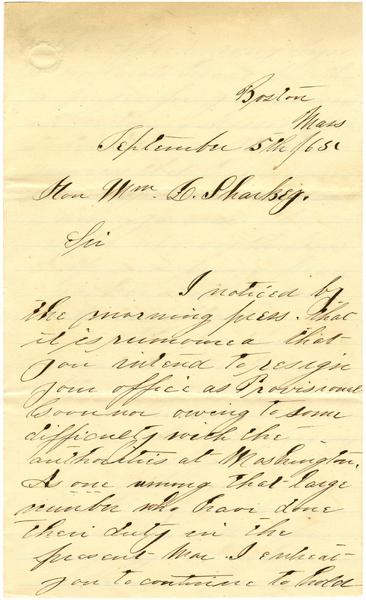 Boston
Mass
September 5th/65
Hon Wm. L. Sharkey.
Sir
I noticed by
the morning press. that
it is rumored that
you intend to resign
your office as Provisional
Governor owing to some
difficulty with the
authorities at Washington.
As one among that large
number who have done
their duty in the
present War. I entreat
you to continue to hold